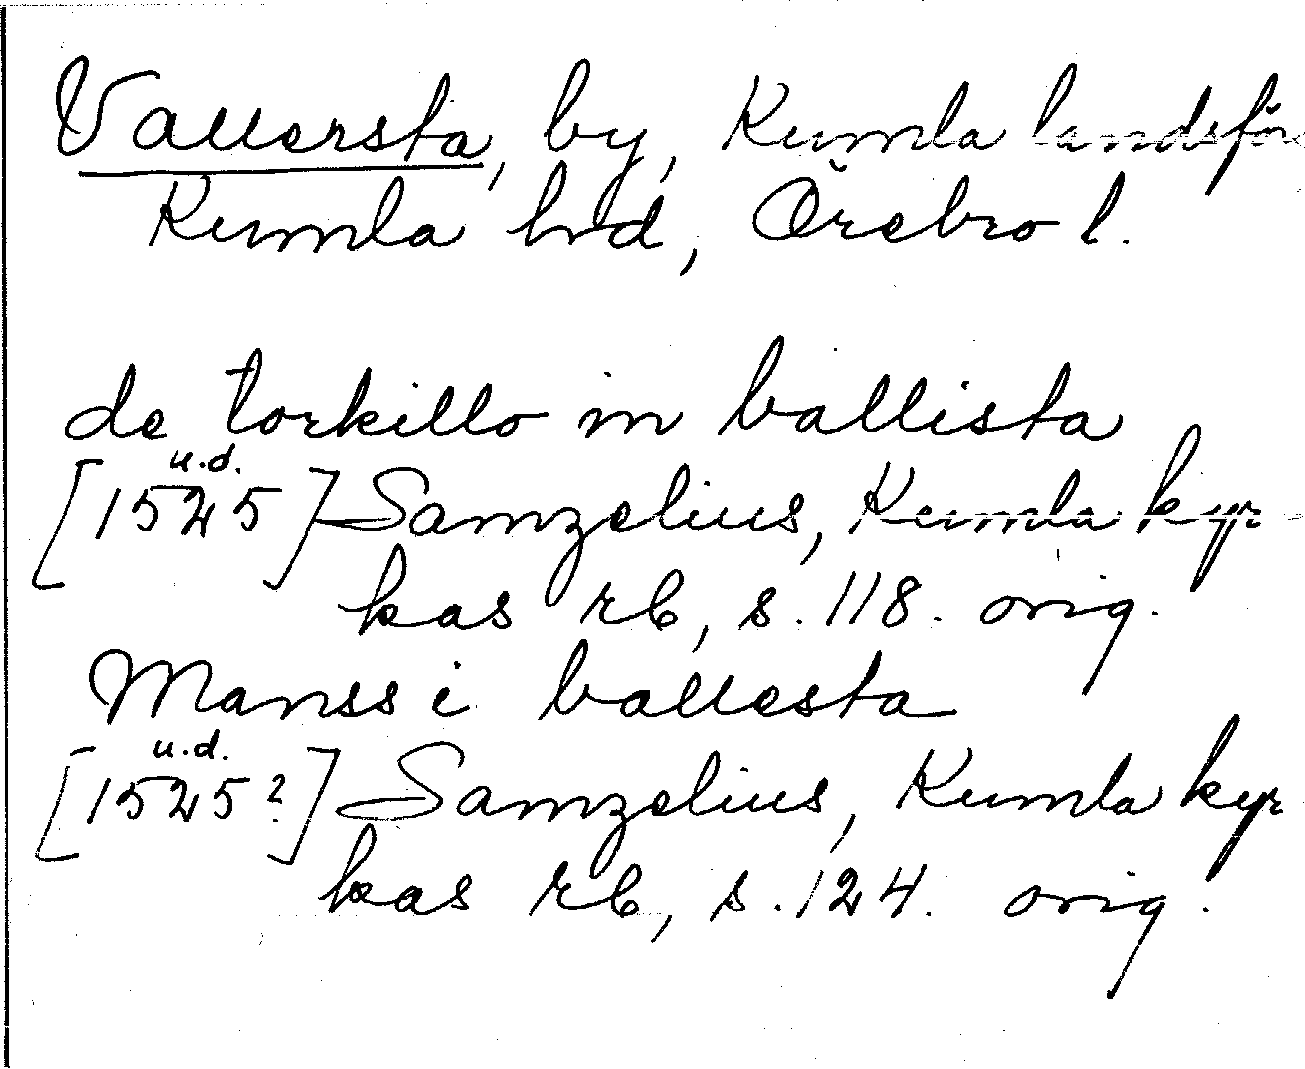 Vallersta, by, Kumla landsför
Kumla hd, Örebro l.
de torkillo in ballista
u.d.
[1525] Samzelius, Kumla kyr-
kas rb, s. 118. orig.
Manss i ballesta
u.d.
[1525?] Samzelius, Kumla kyr
kas rb, s. 124. orig.